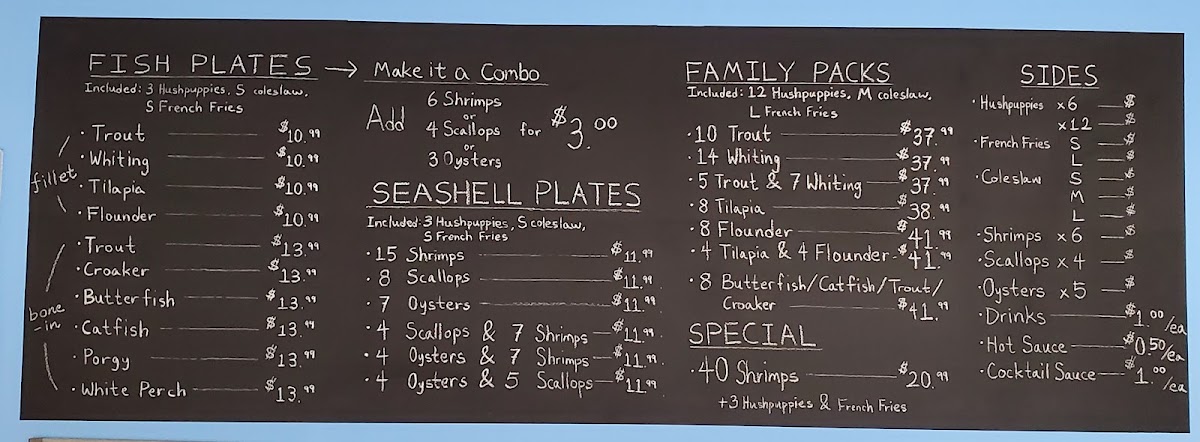 FISH PLATES → Make it a Combo
Included: 3 Hushpuppies, S coleslaw,
S French Fries
fillet
· Trout $10.99
· Whiting $10.99
· Tilapia $10.99
· Flounder $10.99
bone
-in
· Trout $13.99
· Croaker $13.99
· Butterfish $13.99
· Catfish $13.99
· Porgy $13.99
· White Perch $13.99
6 Shrimps
or
Add 4 Scallops for $3.00
or
3 Oysters
SEASHELL PLATES
Included: 3 Hushpuppies, S coleslaw,
S French Fries
· 15 Shrimps $11.99
· 8 Scallops $11.99
· 7 Oysters $11.99
· 4 Scallops & 7 Shrimps $11.99
· 4 Oysters & 7 Shrimps $11.99
· 4 Oysters & 5 Scallops $11.99
FAMILY PACKS
Included: 12 Hushpuppies, M coleslaw,
L French Fries
· 10 Trout $37.99
· 14 Whiting $37.99
· 5 Trout & 7 Whiting $37.99
· 8 Tilapia $38.99
· 8 Flounder $41.99
· 4 Tilapia & 4 Flounder $41.99
· 8 Butterfish/Catfish/Trout/
Croaker $41.99
SPECIAL
· 40 Shrimps $20.99
+3 Hushpuppies & French Fries
SIDES
· Hushpuppies x6 $
x12 $
· French Fries S $
L $
· Coleslaw S $
M $
L $
· Shrimps x6 $
· Scallops x4 $
· Oysters x5 $
· Drinks $1.00/ea
· Hot Sauce $0.50/ea
· Cocktail Sauce $1.00/ea